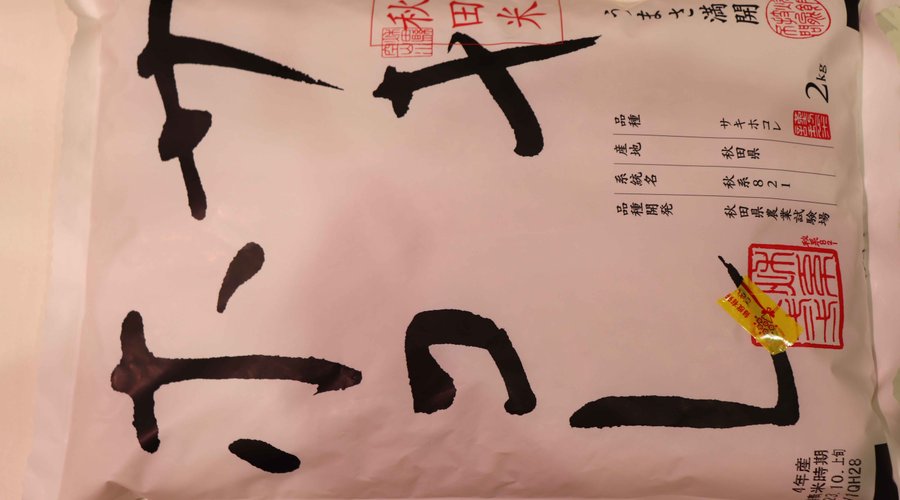 サキホコレ
秋田米
うまさ満開
2kg
品種 サキホコレ
産地 秋田県
系統名 秋系821
品種開発 秋田県農業試験場
秋系821
年産
米時期
10.上旬
QH28